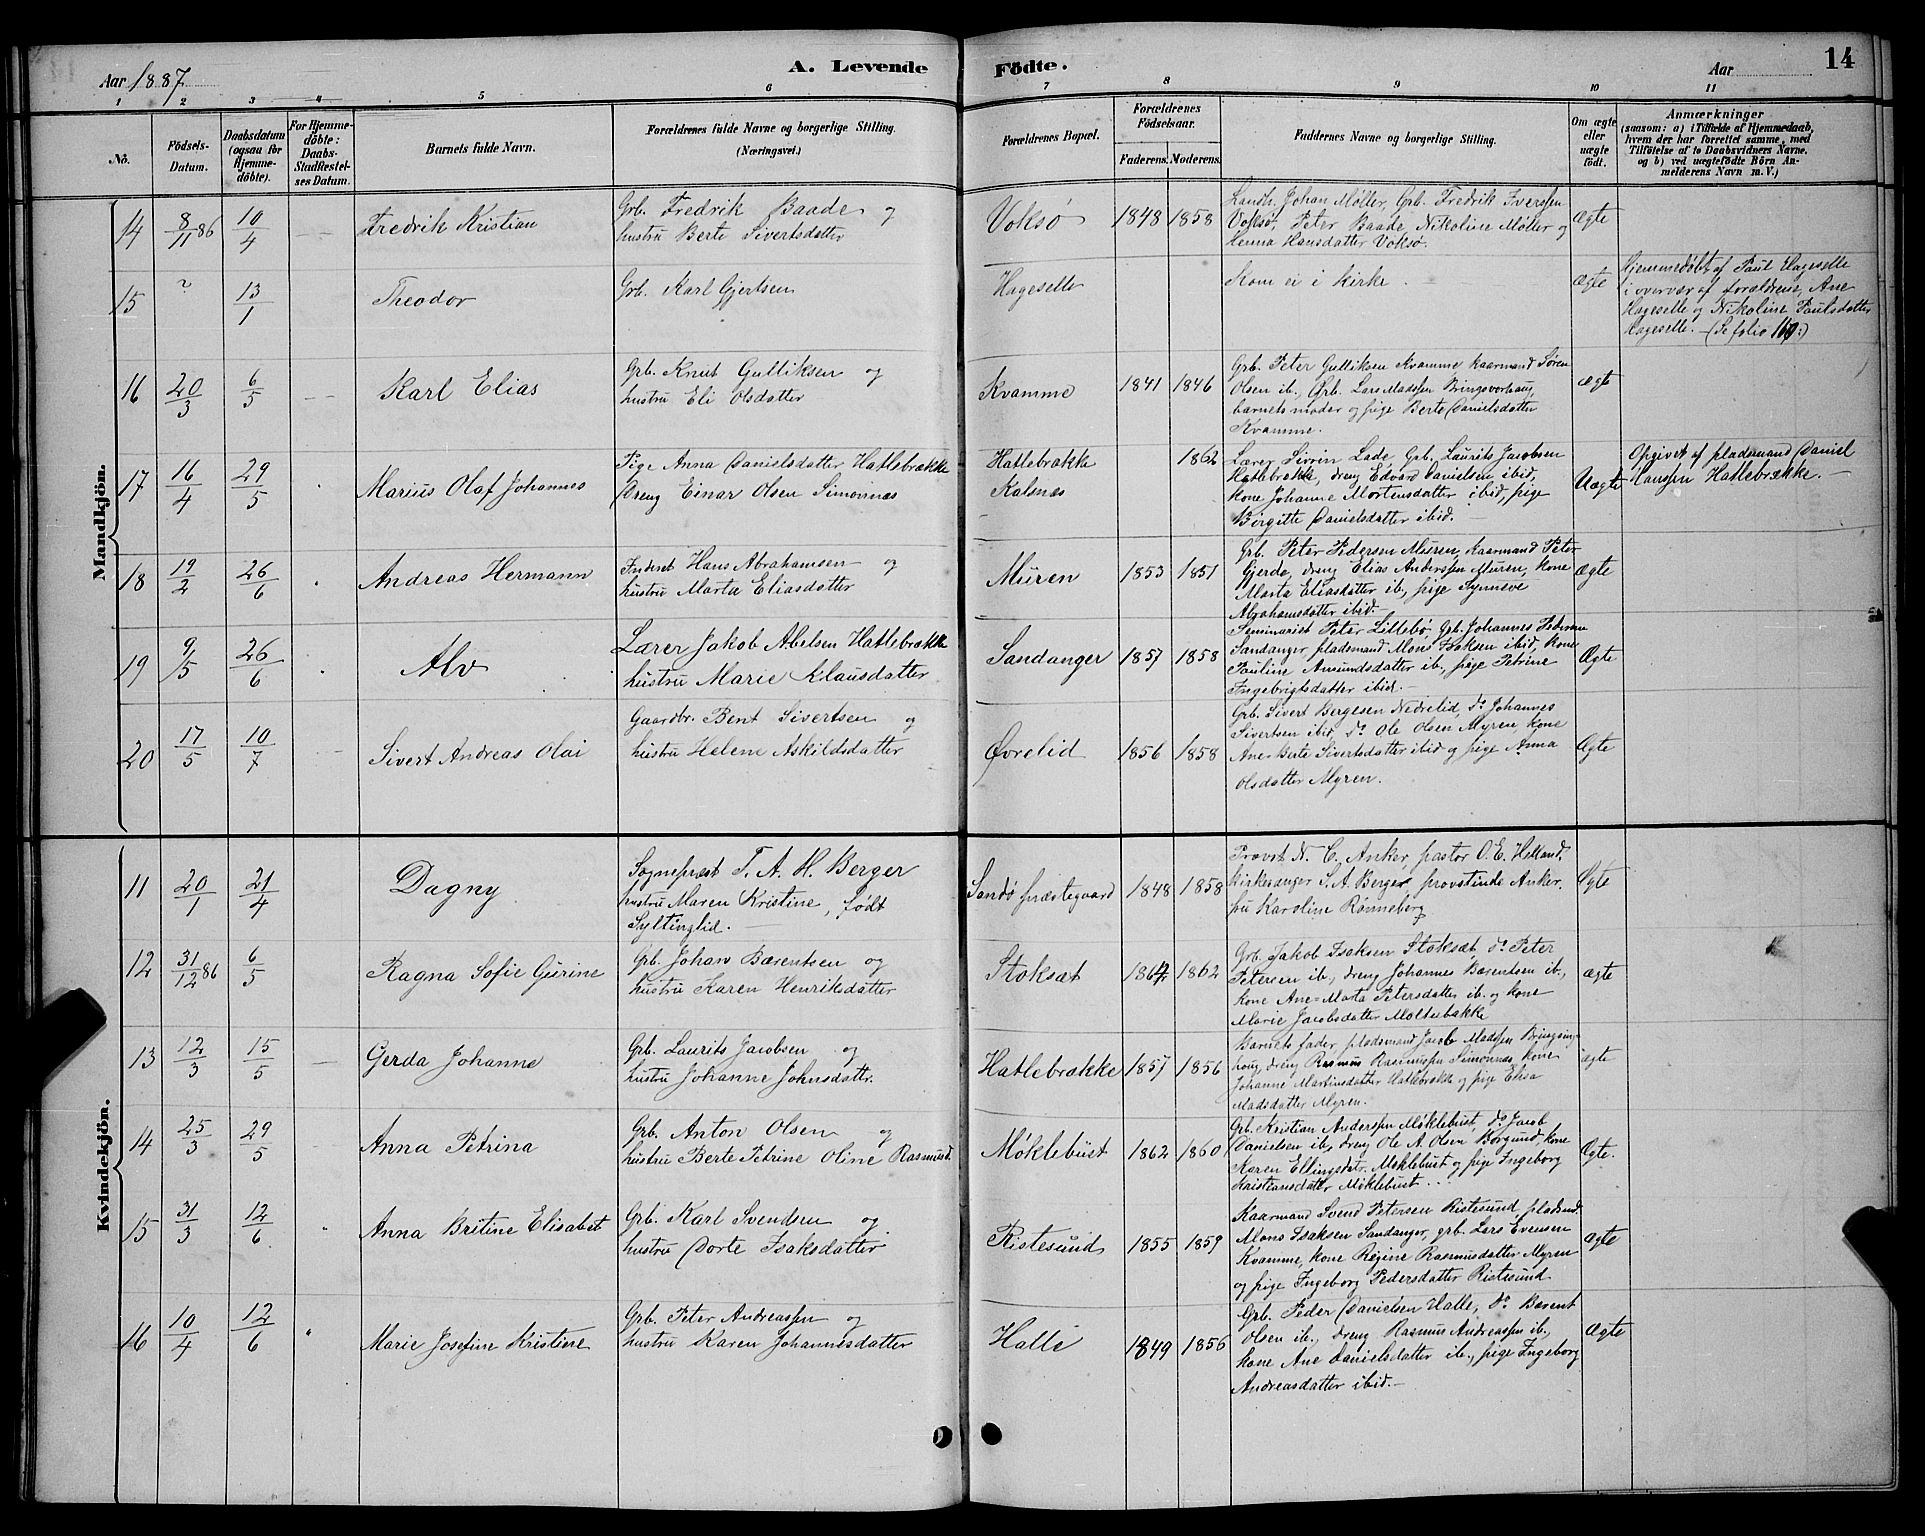 Aar 1887.
A. Levende Födte.
Aar
14
1 2 3 4 5 6 7 8 9 10 11
No.
Födsels-
Datum.
Daabsdatum
(ogsaa for
Hjemme-
döbte).
For Hjemme-
döbte:
Daabs-
Stadfæstel-
ses Datum.
Barnets fulde Navn.
Forældrenes fulde Navne og borgerlige Stilling.
(Næringsvei.)
Forældrenes Bopæl.
Forældrenes
Födselsaar.
Faderens.
Moderens.
Faddernes Navne og borgerlige Stilling.
Om ægte
eller
uægte
født.
Anmærkninger
(saasom: a) i Tilfælde af Hjemmedaab,
hvem der har forrettet samme, med
Tilföielse af to Daabsvidners Navne,
og b) ved uægtefödte Börn An-
melderens Navn m. V.)
Mandkjön.
14 8/11 86 10/4
Fredrik Kristian
Grb. Fredrik Baade og
hustru Berte Sivertsdatter
Voksø 1848 1858
Landh. Johan Møller, Grb. Fredrik Iverssen
Voksø, Peter Baade, Nikoline Møller og
Hansdatter Voksø.
Ægte
15 ? 13/1
Theodor
Grb. Karl Gjertsen
Hageselle
Kom ei i kirke.
Ægte
Hjemmedøbt af Paul Hageselle
i overvær af forældrene, Ane
Hageselle og Nikoline Paulsdatter
Hageselle. (Se folio 110.)
16 20/3 6/5
Karl Elias
Grb. Knut Gulliksen og
hustru Eli Olsdatter
Kvamme 1841 1846
Grb. Peter Gulliksen Kvamme, kaarmand Søren
Olsen ib., Grb. Lars Madssen Bringsvorhaug,
barnets moder og pige Berte Danielsdatter
Kvamme.
ægte
17 16/4 29/5
Marius Olaf Johannes
Pige Anna Danielsdatter Hatlebrække
Dreng Einar Olsen Simonnæs
Hatlebrække
Kalsnæs
1862
Lærer Sivrin Lade, Grb. Laurits Jacobsen
Hatlebrække, dreng Edvard Danielsen ibid,
kone Johanne Mortensdatter ibid, pige
Birgitte Danielsdatter ibid.
Uægte
Opgivet af pladsmand Daniel
Hanssen Hatlebrække.
18 19/2 26/6
Andreas Hermann
Inderst Hans Abrahamsen og
hustru Marta Eliasdatter
Muren 1853 1851
Grb. Peter Pedersen Muren, kaarmand Peter
Gjerde, dreng Elias Anderssen Muren, kone
Marta Eliasdatter ib., pige Synneve
Abrahamsdatter ibid.
Ægte
19 9/5 26/6
Alv
Lærer Jakob Abelsen Hatlebrække
hustru Marie Klausdatter
Sandanger 1857 1858
Seminarist Peter Lillebø, Grb. Johannes Pedersen
Sandanger, pladsmand Mons Isaksen ibid, kone
Pauline Amundsdatter ib., pige Petrine
Ingebrigtsdatter ibid.
Ægte
20 17/5 10/7
Sivert Andreas Olai
Gaardbr. Bent Sivertsen og
hustru Helene Askildsdatter
Øvrelid 1856 1858
Grb. Sivert Bergesen Nedrelid, do Johannes
Sivertsen ibid, do Ole Olsen Myren, kone
Ane-Berte Sivertsdatter ibid og pige Anna
Olsdatter Myren.
Ægte
Kvindekjön.
11 20/1 21/4
Dagny
Sognepræst T. A. H. Berger
hustru Maren Kristine, født
Syltinglid.
Sandø præstegaard 1848 1858
Provst N. C. Anker, pastor O. E. Helland,
kirkesanger S. A. Berger, provstinde Anker,
fru Karoline Rønneberg
Ægte
12 31/12 86 6/5
Ragna Sofie Gurine
Grb. Johan Bærentsen og
hustru Karen Henriksdatter
Stoksæt 1864 1862
Grb. Jakob Isaksen Stoksæt, do Peter
Petersen ib., dreng Johannes Bærentsen ib.,
kone Ane-Marta Petersdatter ib. og kone
Marie Jacobsdatter Moltubakke
ægte
13 12/3 15/5
Gerda Johanne
Grb. Laurits Jacobsen og
hustru Johanne Johnsdattr.
Hatlebrække 1857 1856
Barnets fader, pladsmand Jacob Madssen Bringsing-
houg, dreng Rasmus Rasmussen Simonnæs, kone
Johanne Martinsdatter Hatlebrække og pige Elisa
Madsdatter Myren.
ægte
14 25/3 29/5
Anna Petrina
Grb. Anton Olsen og
hustru Berte Petrine Oline Rasmusd.
Møklebust 1862 1860
Grb. Kristian Anderssen Møklebust, do Jacob
Danielsen ib., dreng Ole A. Olsen Borgund, kone
Karen Ellingsdatr. Møklebust og pige Ingeborg
Kristiansdatter Møklebust.
Ægte.
15 31/3 12/6
Anna Britine Elisabet
Grb. Karl Svendsen og
hustru Dorte Isaksdatter
Ristesund 1855 1859
Kaarmand Svend Petersen Ristesund, pladsmd.
Mons Isaksen Sandanger, grb. Lars Evensen
Kvamme, kone Regine Rasmusdatter Myren
og pige Ingeborg Pedersdatter Ristesund
Ægte
16 10/4 12/6
Marie Josefine Kristine
Grb. Peter Andreassen og
hustru Karen Johannesdatter
Halle 1849 1856
Grb. Peder Danielsen Halle, do Bærent
Olsen ib., dreng Rasmus Andreassen ib.,
kone Ane Danielsdatter ib., pige Ingeborg
Andreasdatter ibid.
Ægte